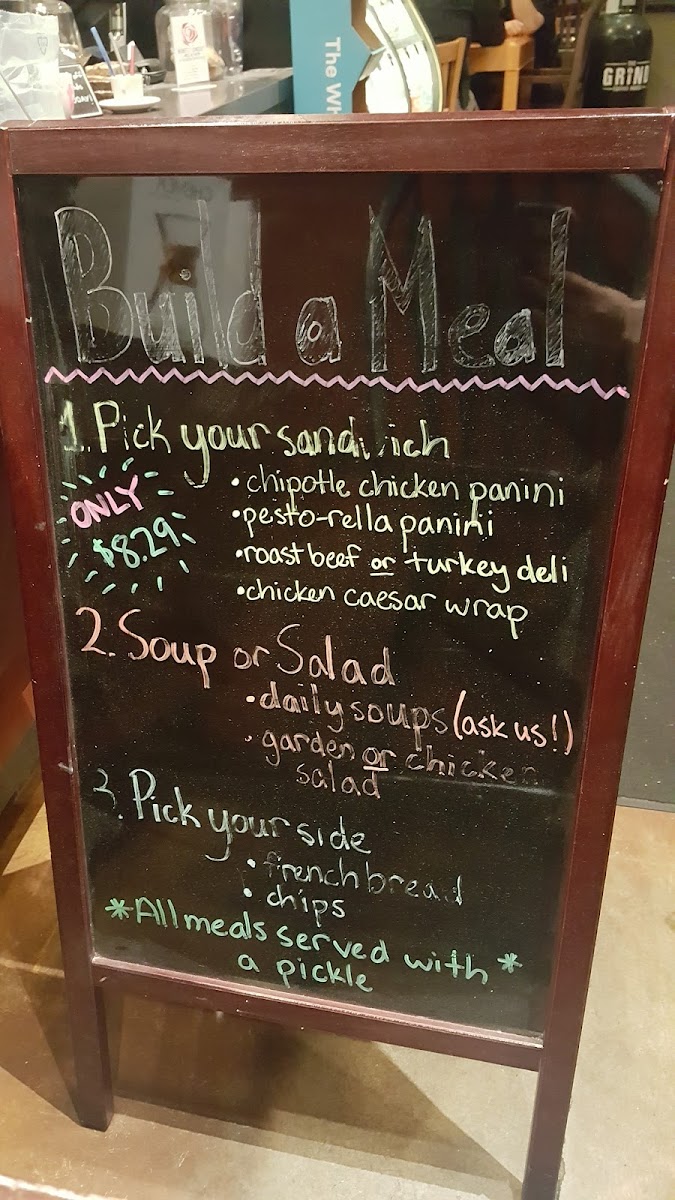 The Wh
THE
GRIND
Build a Meal
1. Pick your sandwich
ONLY
$8.29
• chipotle chicken panini
• pesto-rella panini
• roast beef or turkey deli
• chicken caesar wrap
2. Soup or Salad
• daily soups (ask us!)
• garden or chicken
salad
3. Pick your side
• french bread
• chips
*All meals served with*
a pickle